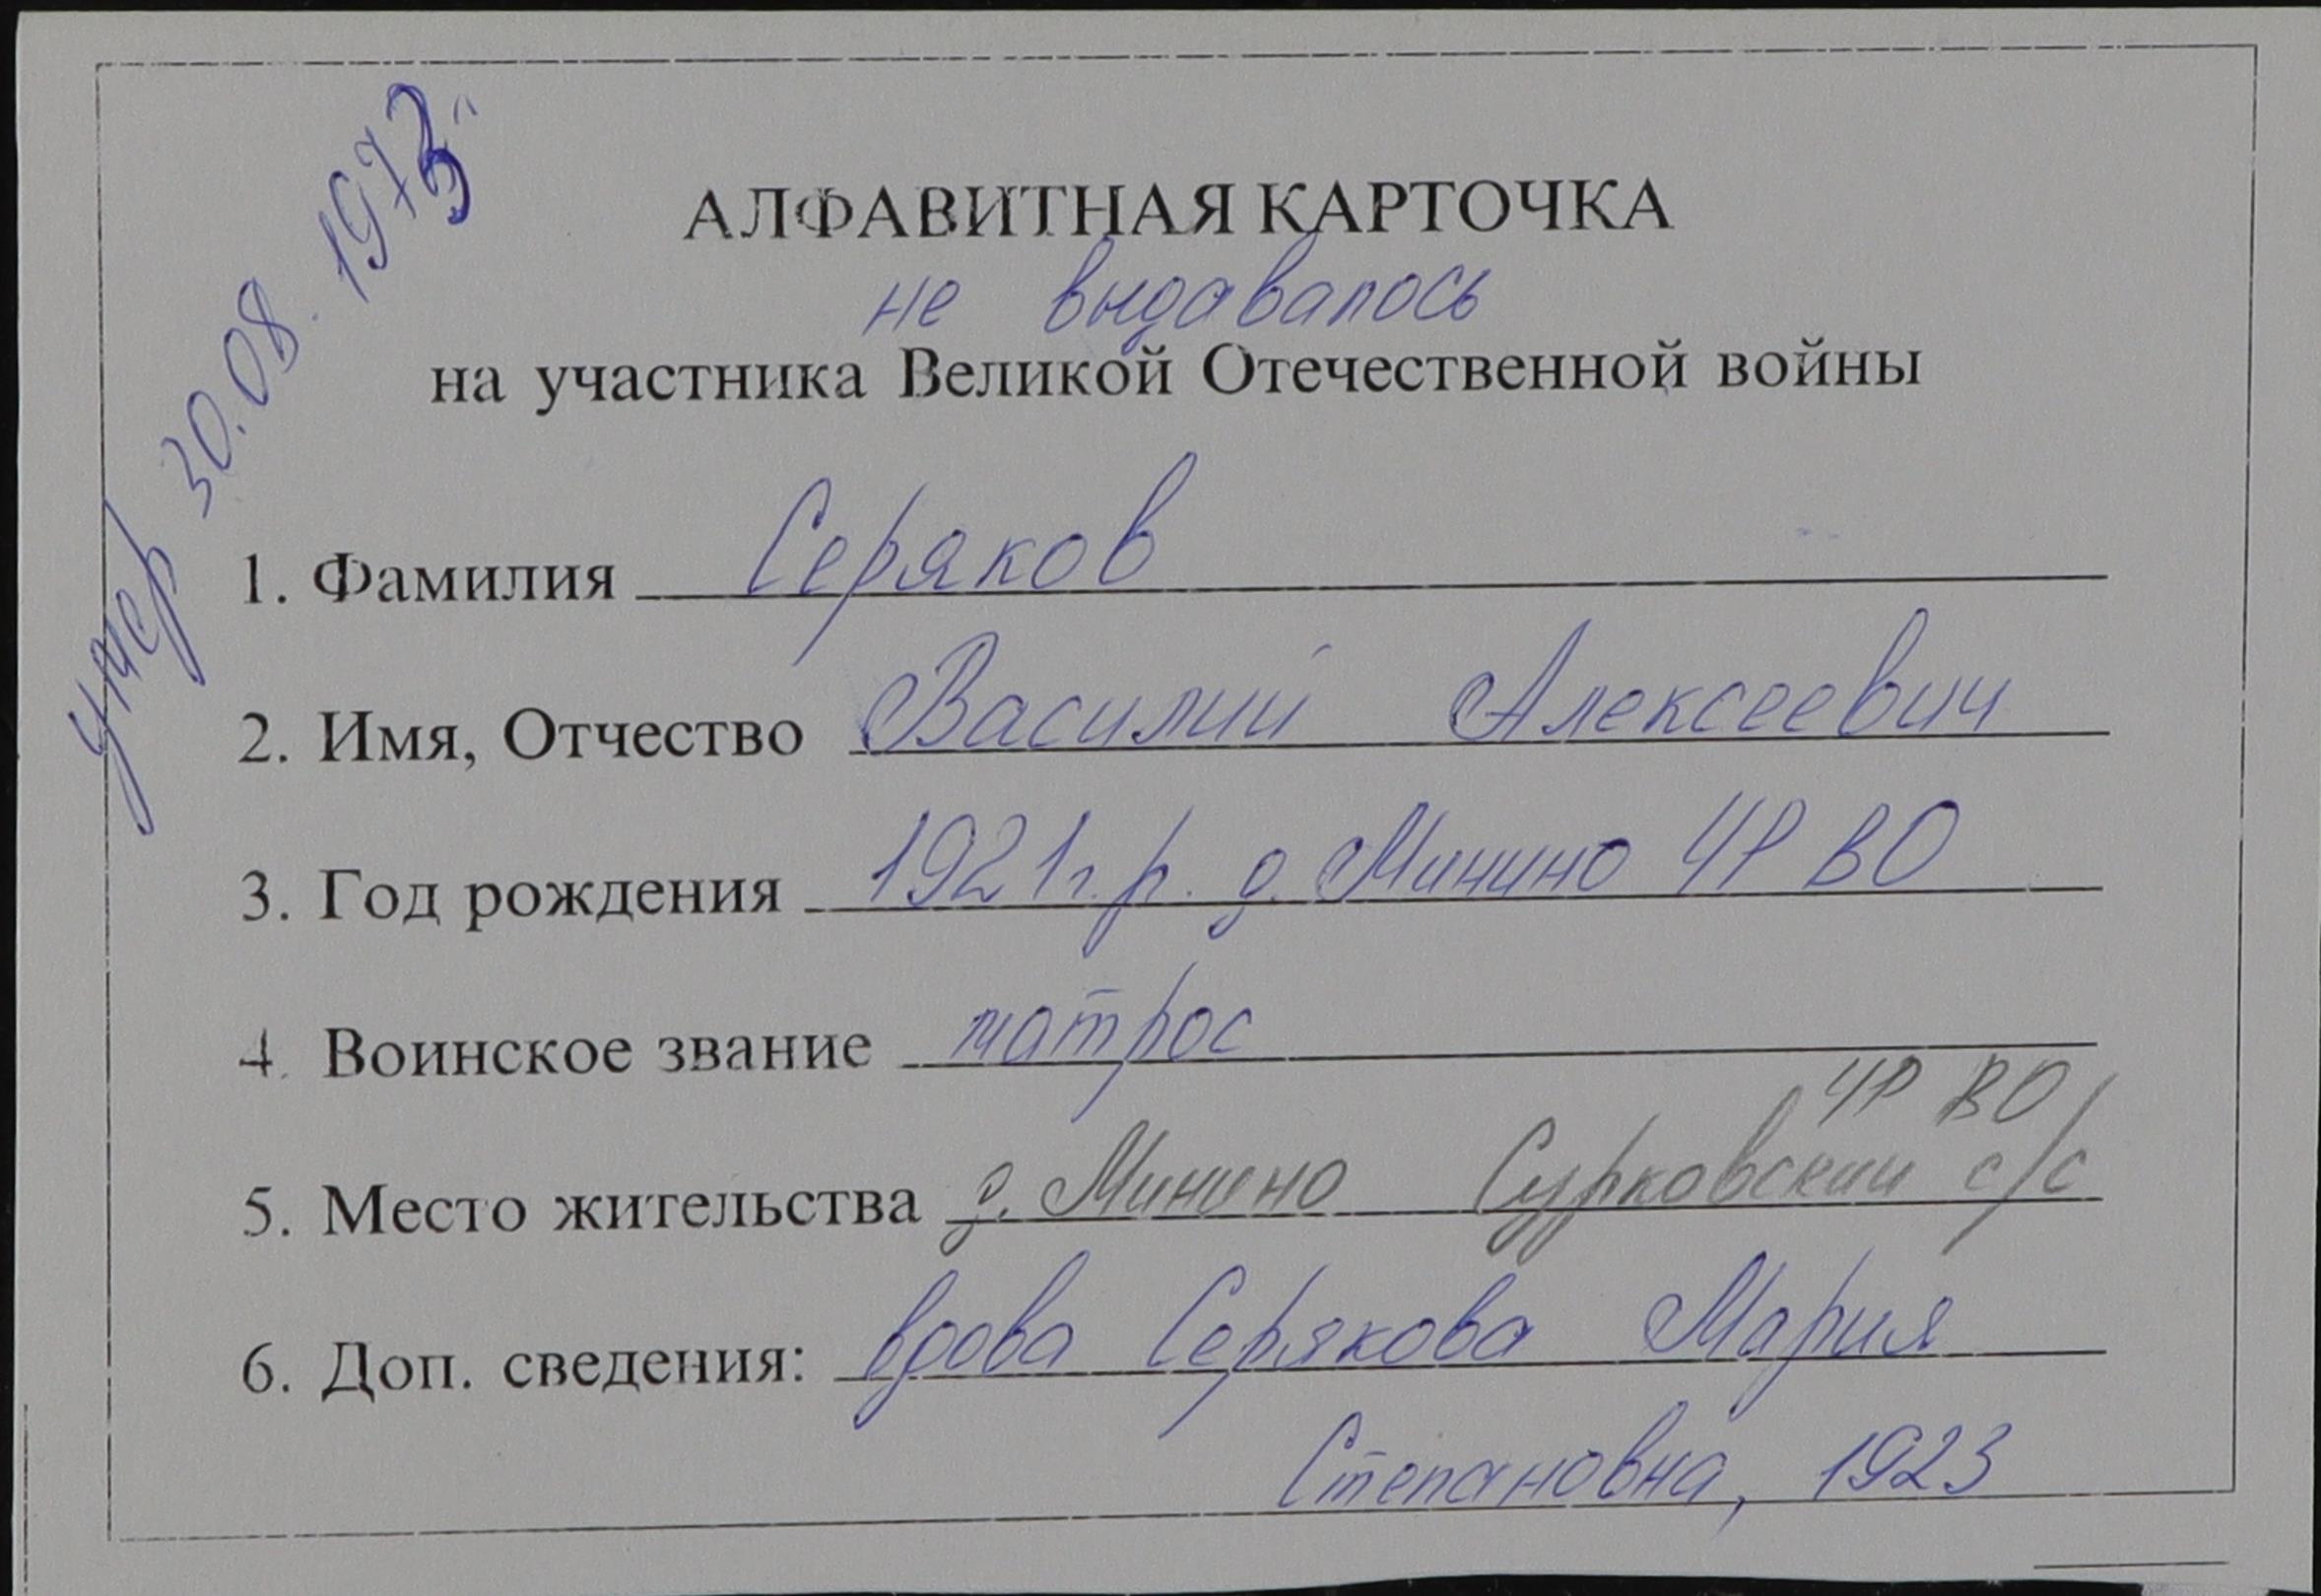 умер 30.08.1973
АЛФАВИТНАЯ КАРТОЧКА
не выдавалось
на участника Великой Отечественной войны
1. Фамилия Серяков
2. Имя, Отчество Василий Алексеевич
3. Год рождения 1921г.р. д. Минино ЧР ВО
4. Воинское звание матрос
ЧР ВО
5. Место жительства д. Минино Сурковский с/с
6. Доп. сведения: вдова Серякова Мария
Степановна, 1923